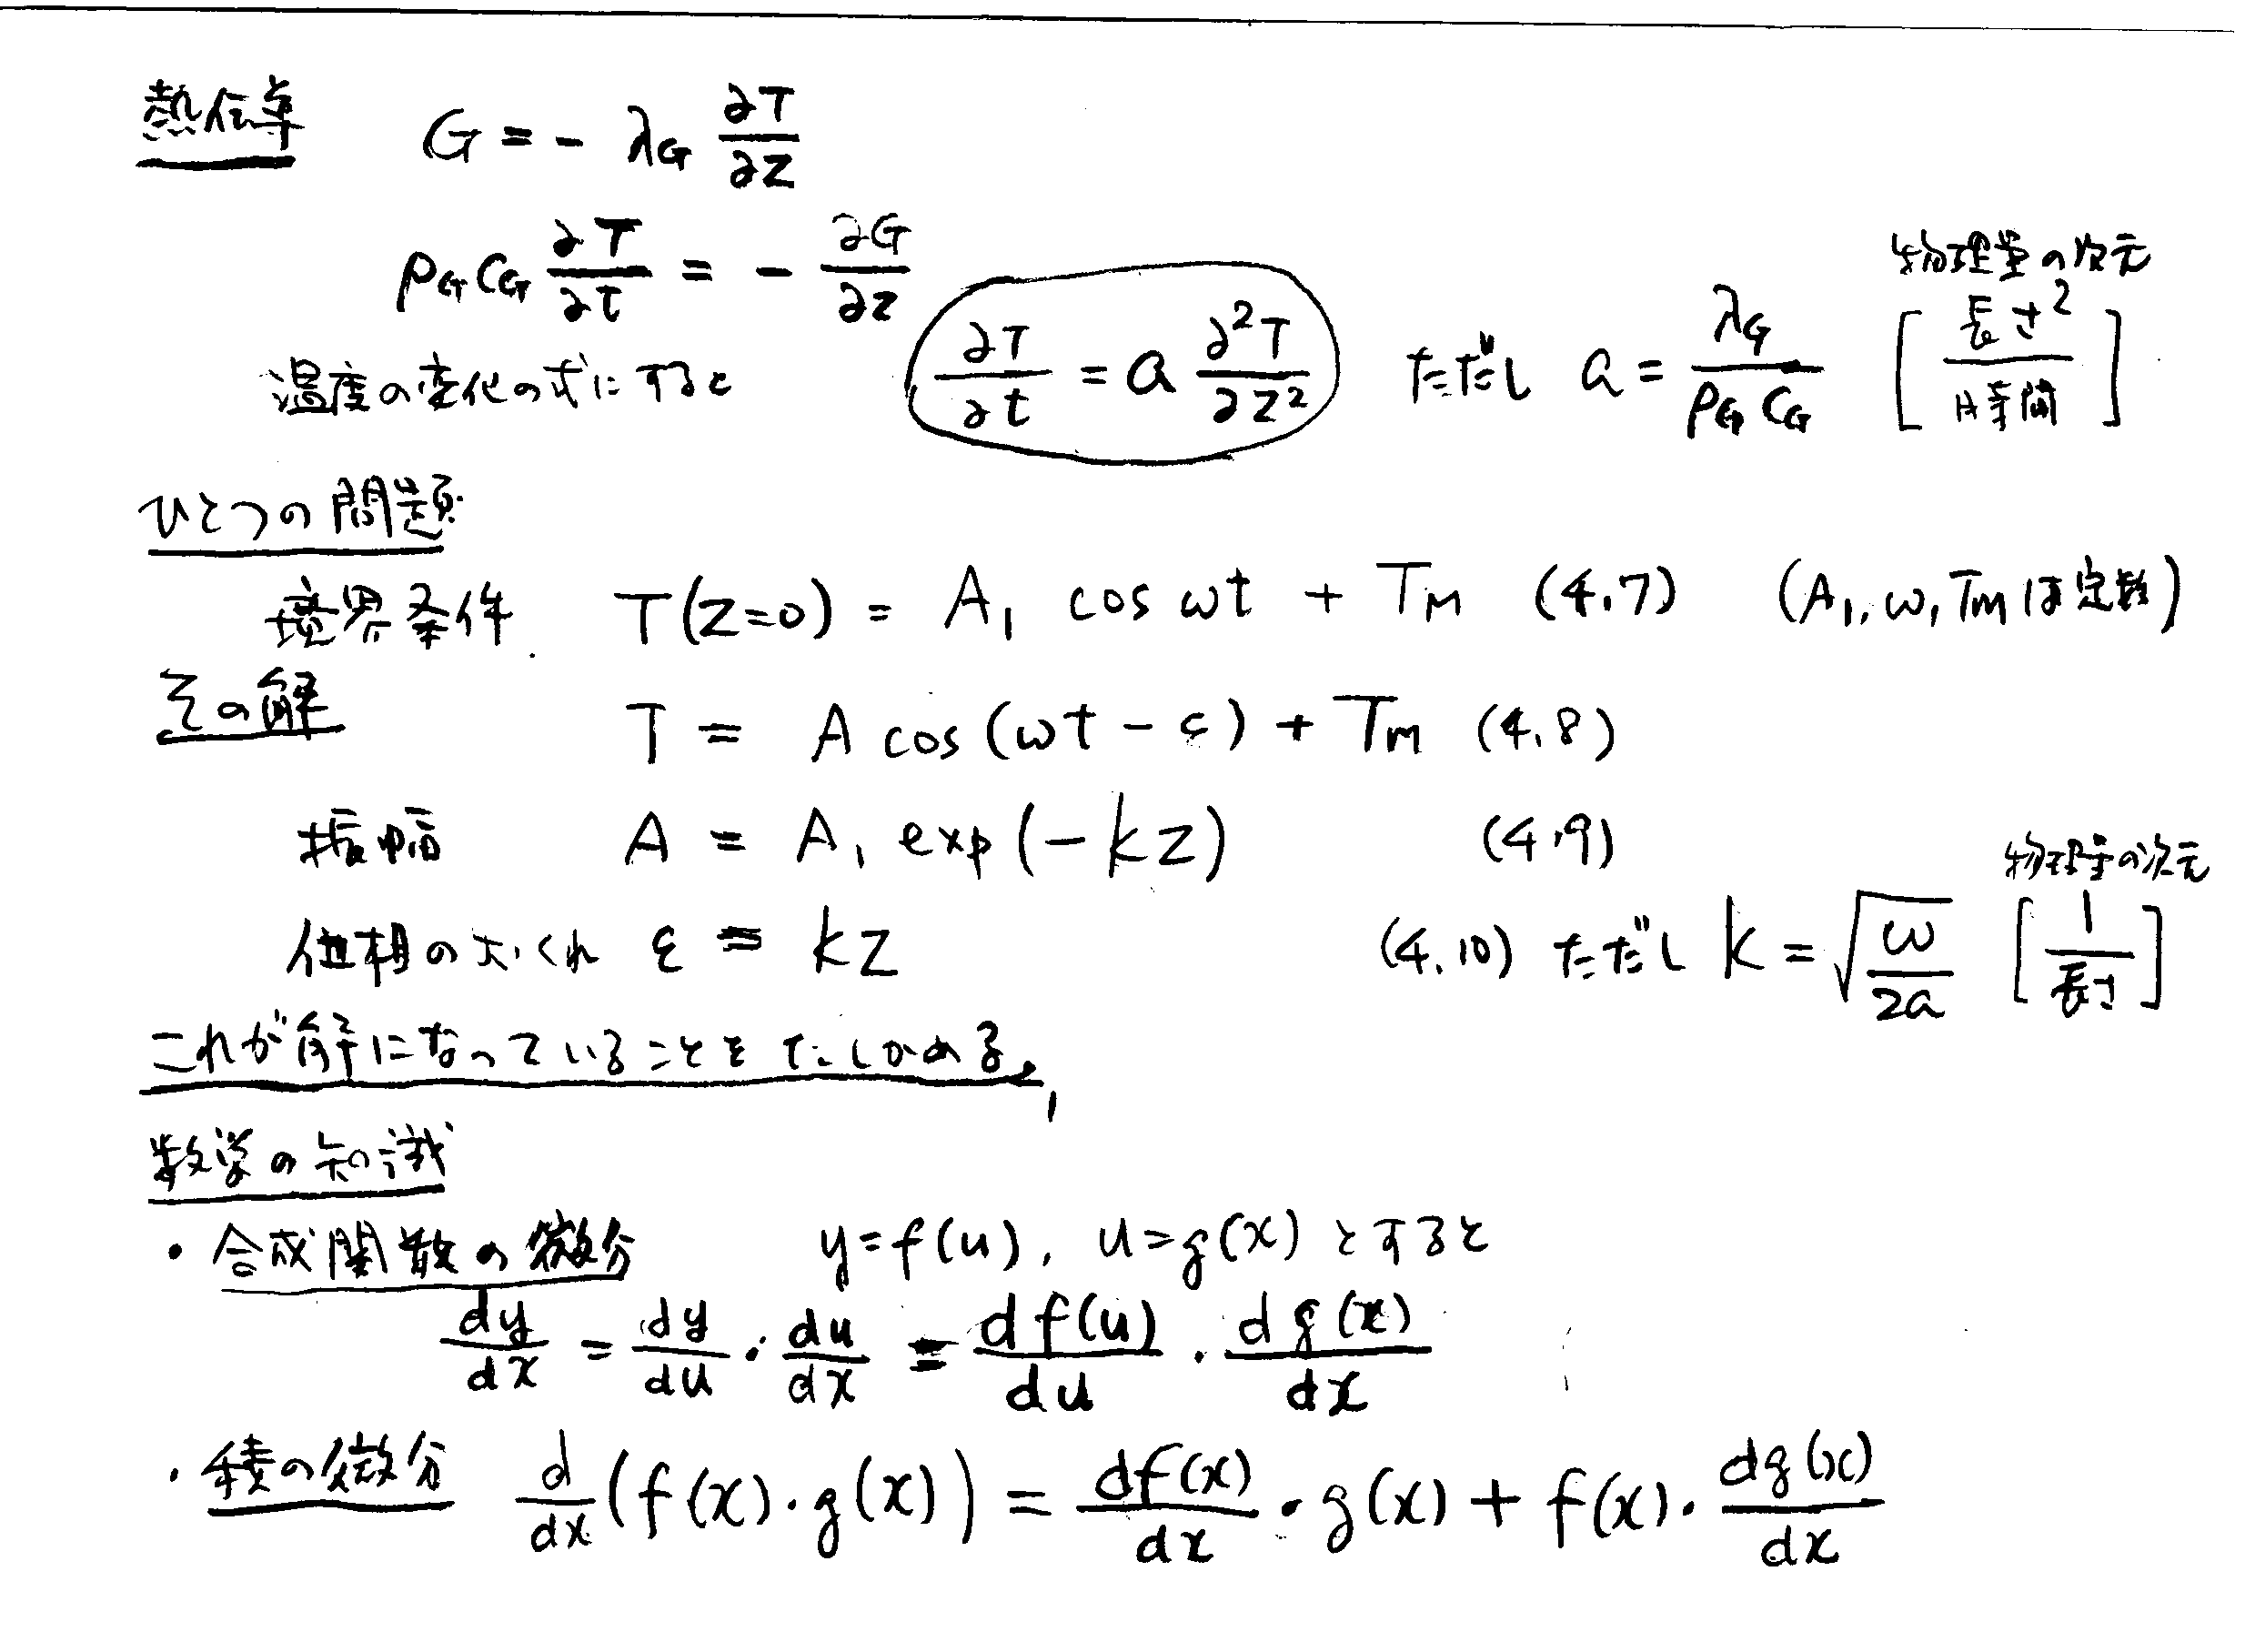 熱伝導 G = - λG ∂T/∂z
ρG cG ∂T/∂t = - ∂G/∂z
物理量の次元
温度の変化の式にすると ∂T/∂t = a ∂²T/∂z² ただし a = λG/(ρG cG) [長さ²/時間]
ひとつの問題
境界条件 T(z=0) = A₁ cos ωt + Tm (4.7) (A₁, ω, Tmは定数)
その解 T = A cos(ωt - ε) + Tm (4.8)
振幅 A = A₁ exp(-kz) (4.9)
物理量の次元
位相のおくれ ε = kz (4.10) ただし k = √(ω/2a) [1/長さ]
これが解になっていることをたしかめる。
数学の知識
・合成関数の微分 y=f(u), u=g(x) とすると
dy/dx = dy/du · du/dx = df(u)/du · dg(x)/dx
・積の微分 d/dx (f(x)·g(x)) = df(x)/dx · g(x) + f(x) · dg(x)/dx